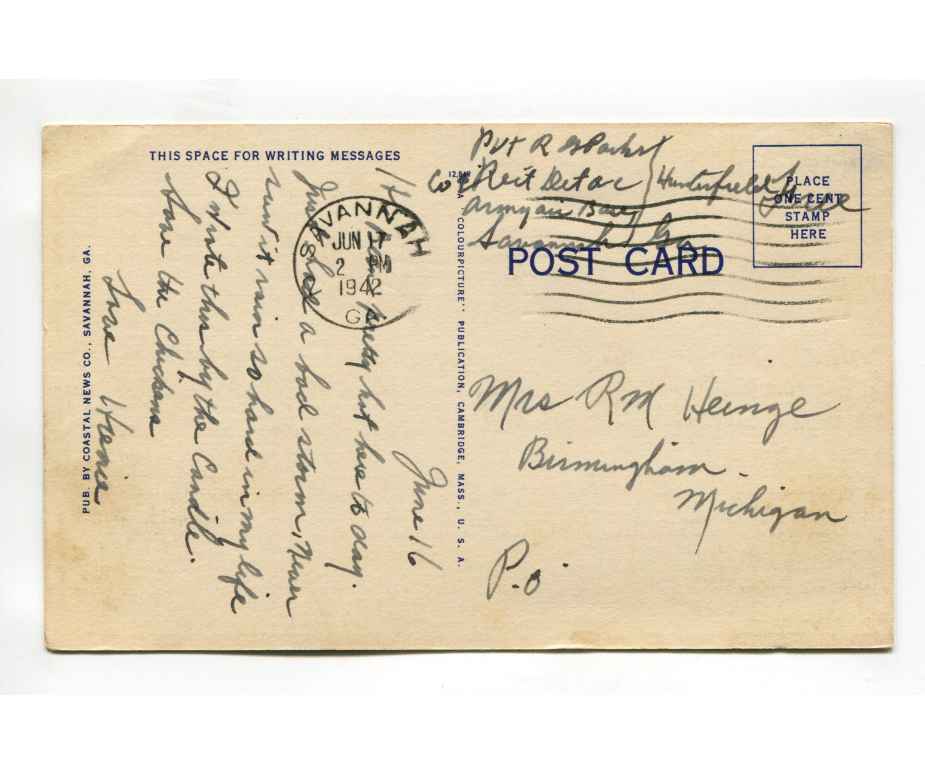 THIS SPACE FOR WRITING MESSAGES
June 16
pretty hot here to day.
Just had a bad storm, Never
seen it rain so hard in my life
I wrote this by the Candle.
Save the Chickens
Love
PUB. BY COASTAL NEWS CO., SAVANNAH, GA.
COLOURPICTURE" PUBLICATION, CAMBRIDGE, MASS., U. S. A.
SAVANNAH
JUN 17
2 PM
1942
GA
Pvt R
Co Hunterfield Free
Army air Base
Savannah Ga
PLACE
ONE CENT
STAMP
HERE
POST CARD
Mrs RM Heinge
Birmingham
Michigan
P.O.